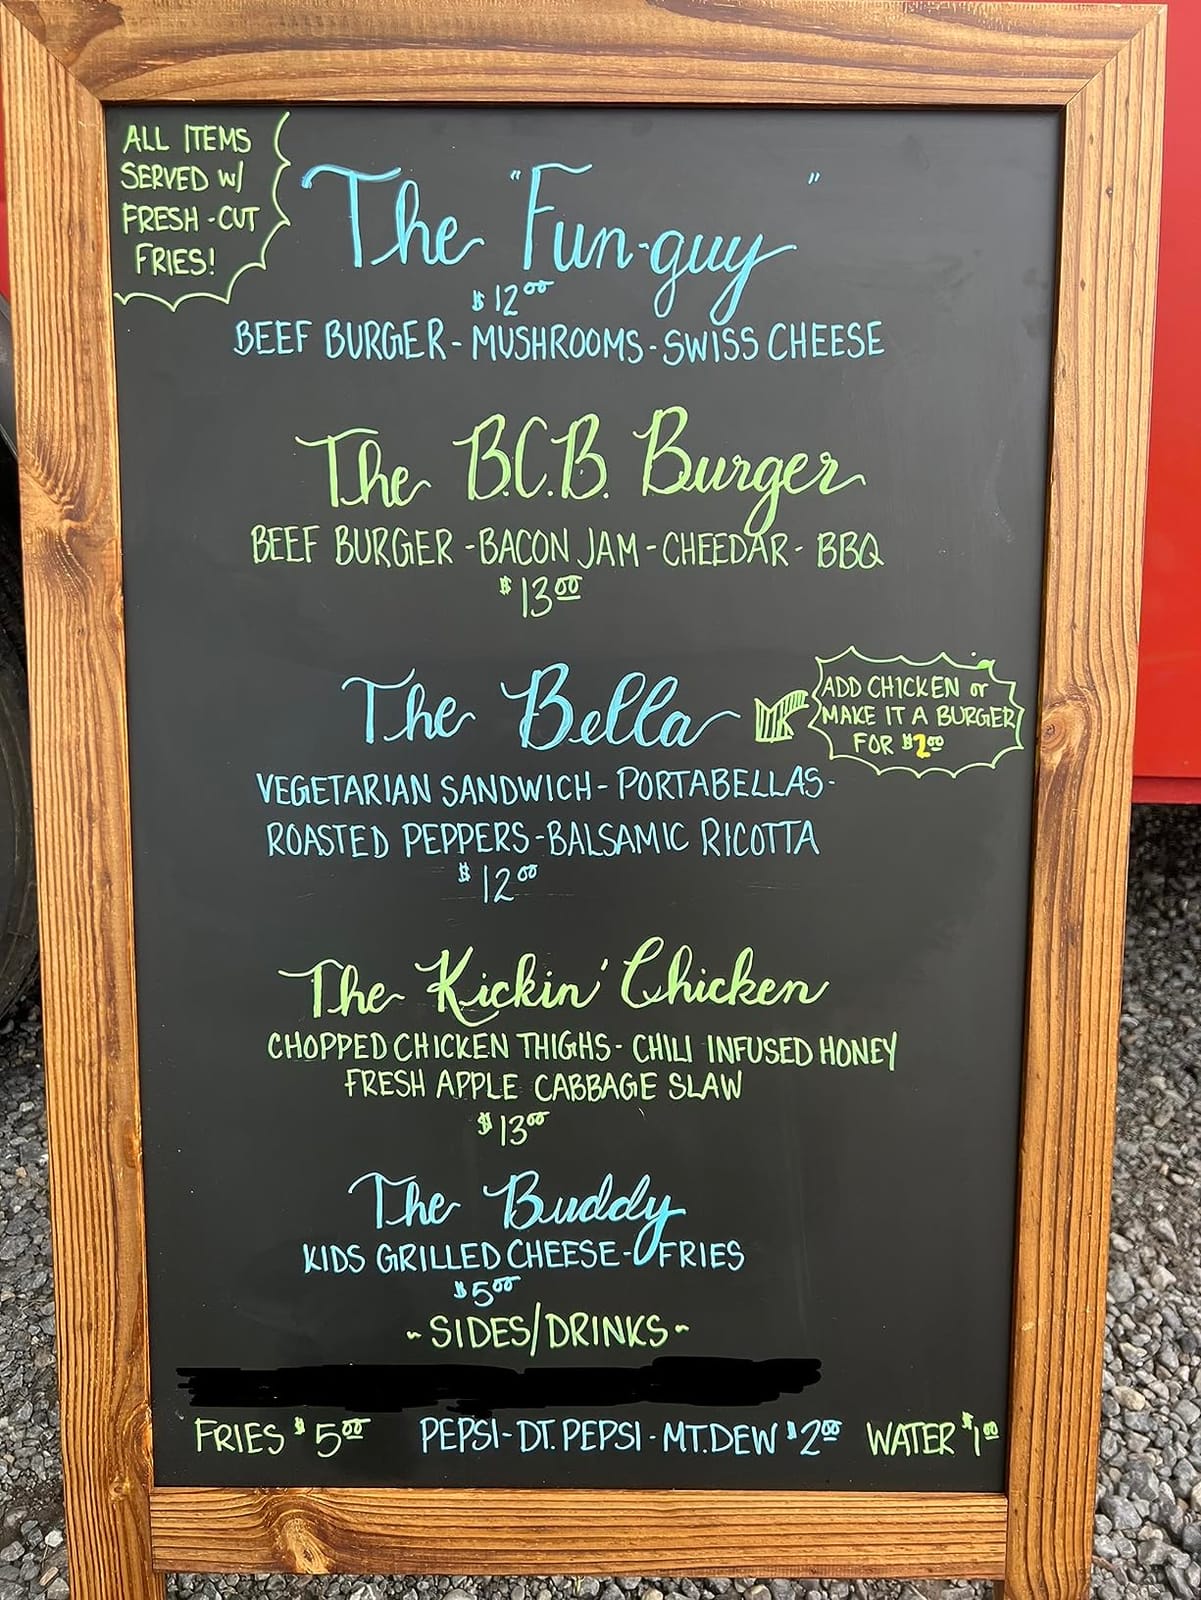 ALL ITEMS
SERVED W/
FRESH-CUT
FRIES!
The "Fun-guy"
$12.00
BEEF BURGER - MUSHROOMS - SWISS CHEESE
The B.C.B. Burger
BEEF BURGER - BACON JAM - CHEEDAR - BBQ
$13.00
The Bella
ADD CHICKEN or
MAKE IT A BURGER
FOR $2.00
VEGETARIAN SANDWICH - PORTABELLAS -
ROASTED PEPPERS - BALSAMIC RICOTTA
$12.00
The Kickin' Chicken
CHOPPED CHICKEN THIGHS - CHILI INFUSED HONEY
FRESH APPLE CABBAGE SLAW
$13.00
The Buddy
KIDS GRILLED CHEESE - FRIES
$5.00
~ SIDES/DRINKS ~
FRIES $5.00 PEPSI - DT. PEPSI - MT. DEW $2.00 WATER $1.00